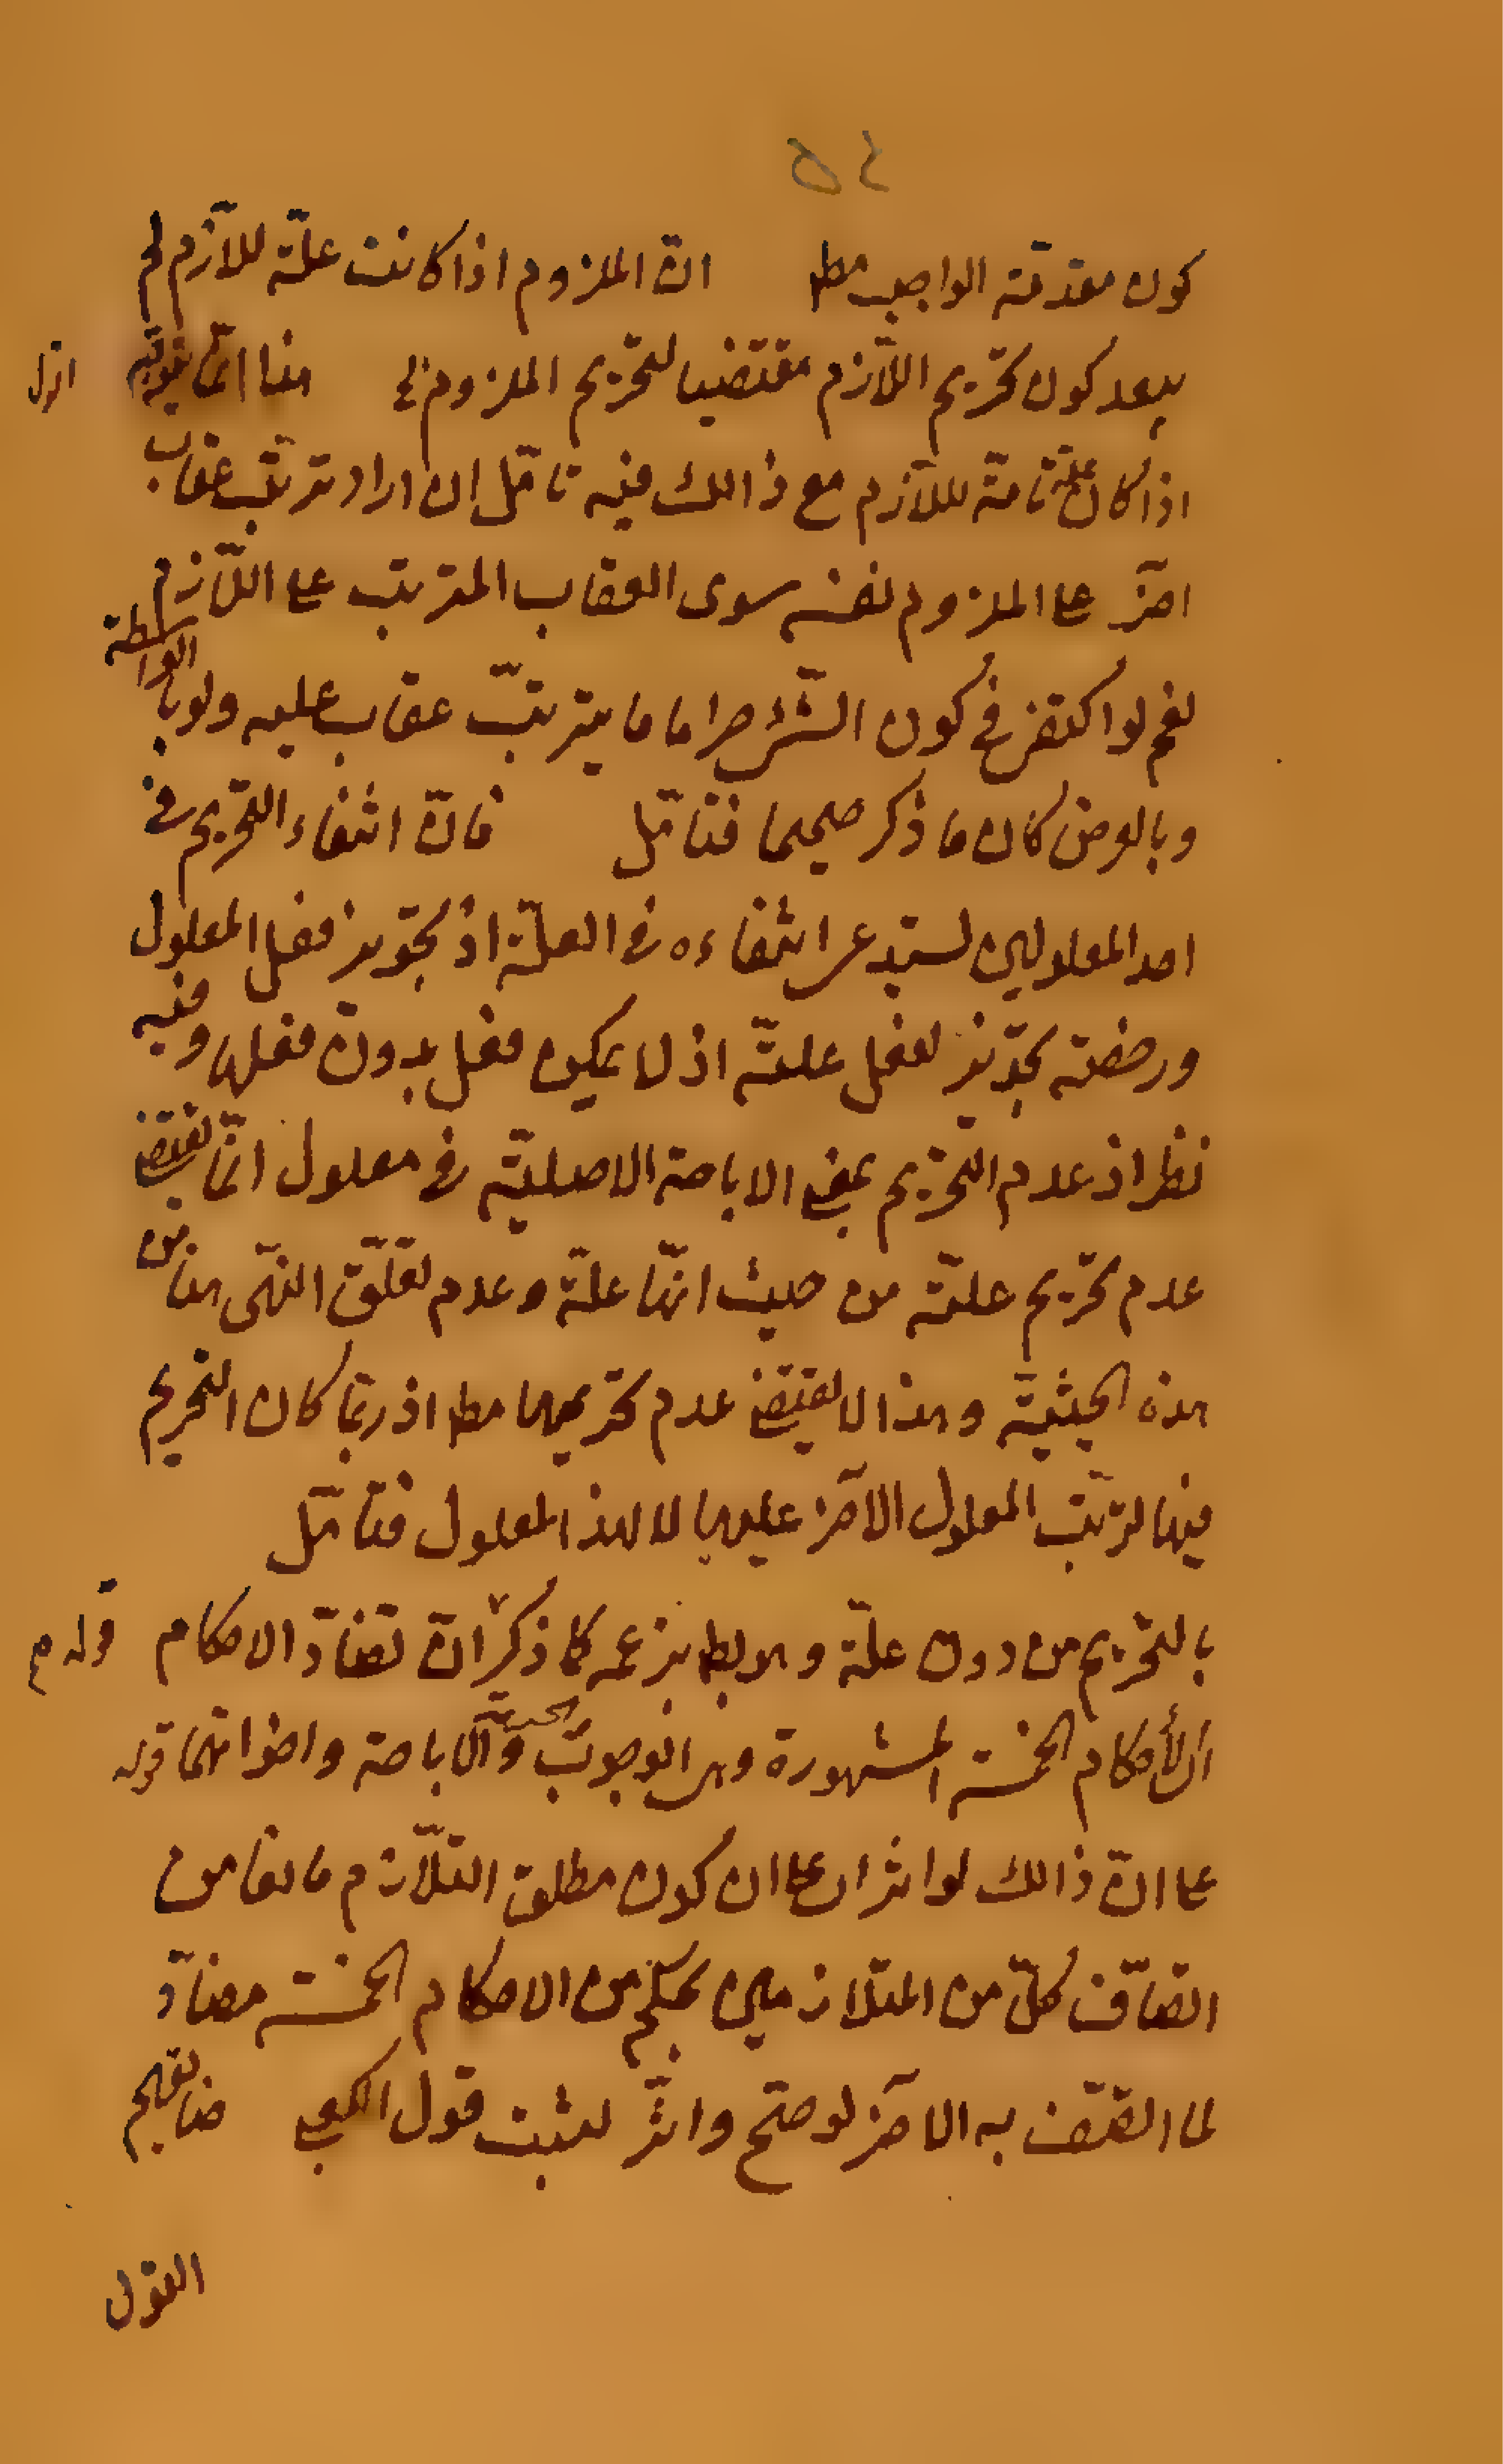 ٥٤
كون مقدمة الواجب مط انّ الملزوم اذا كانت علّة للاّزم لم
يبعد كون تحريم اللاّزم مقتضيا لتحريم الملزوم الخ هذا انّما يتم
اقول
اذا كان علّة تامّة للاّزم مع ذالك فيه تامّل ان اراد ترتّب عقاب
آخر على الملزوم نفسه سوى العقاب المترتب على اللاّزم
نعم لو اكتفى فى كون الشّئ حراما ما يترتّب عقاب عليه ولو بالواسطة
وبالعرض كان ما ذكر صحيحا فتامّل فانّ انتفاء التحريم فى
احد المعلولين يستدعى انتفاءه فى العلّة اذ تجويز فعل المعلول
ورخصته تجويز لفعل علّته اذ لا يمكن فعل بدون فعلها وفيه
نظر اذ عدم التحريم بمعنى الاباحة الاصليّة فى معلول انّما يقتضى
عدم تحريم علّته من حيث انّها علّة وعدم تعلّق النّهى بها من
هذه الحيثيّة وهذا لا يقتضى عدم تحريمها مط اذ ربّما كان التحريم
فيها لترتّب المعلول الآخر عليها لا لهذا المعلول فتامّل
بالتحريم من دون علّة وهو بط بزعمه كما ذكر انّ تضادّ الاحكام
قوله م
اى الأحكام الخمسة المشهورة وهى الوجوب والحرمة والاباحة واخواتها قوله
على انّ ذالك لو اثر اى على ان كون مطلق التلاّزم مانعا من
اتصاف كلّ من المتلازمين بحكم من الاحكام الخمسة مضادّ
لما اتّصف به الآخر لو صحّ واثّر لثبت قول الكعبى
القول